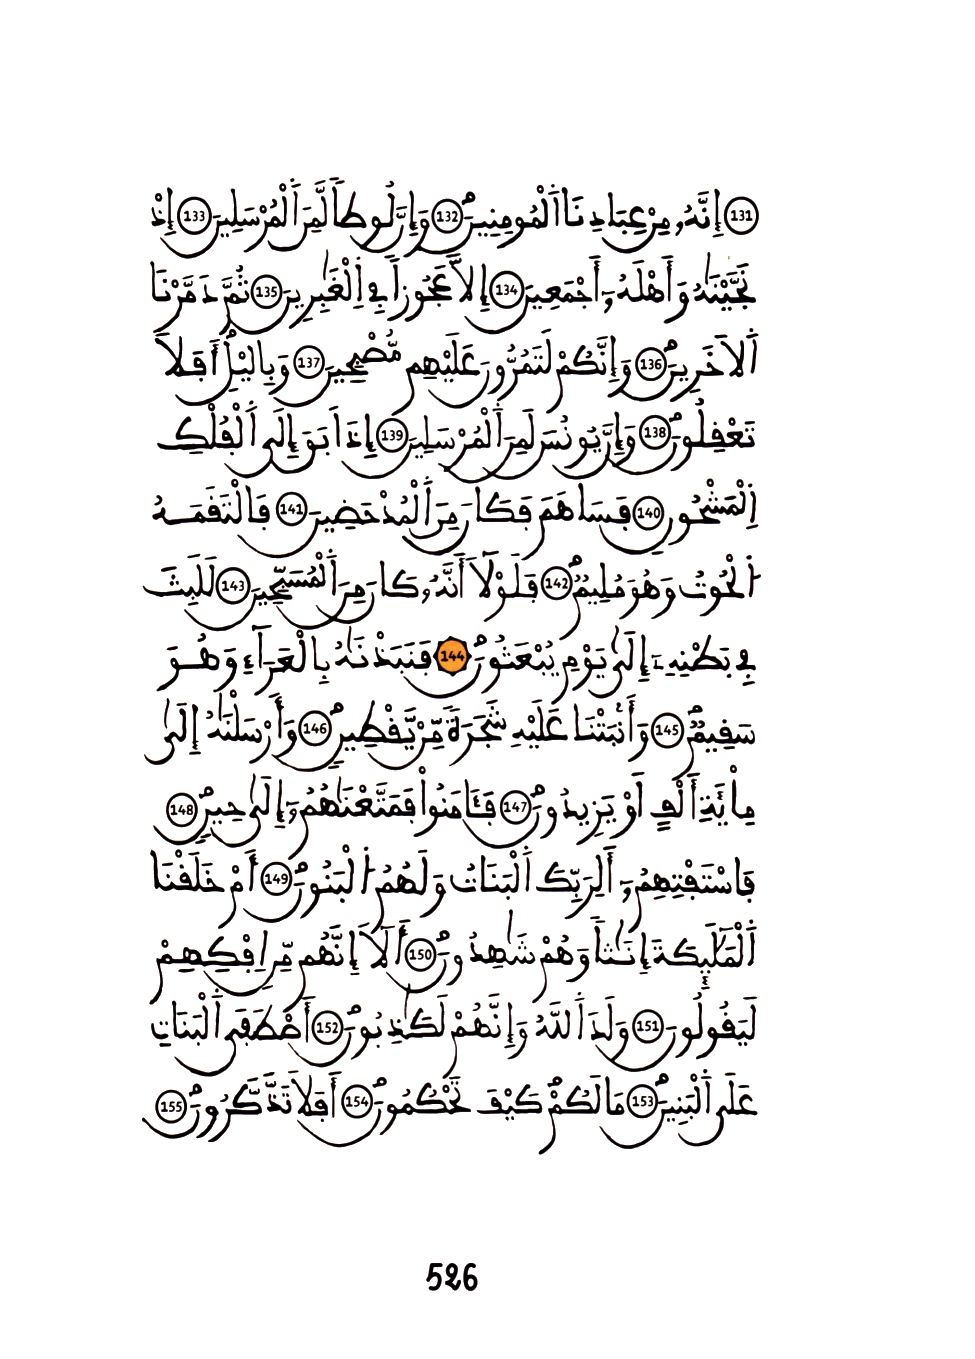 (131) إِنَّهُۥ مِنْ عِبَادِنَا اَ۬لْمُومِنِينَ (132) وَإِنَّ لُوطاٗ لَّمِنَ اَ۬لْمُرْسَلِينَ (133) إِذْ
نَجَّيْنَٰهُ وَأَهْلَهُۥٓ أَجْمَعِينَ (134) إِلَّا عَجُوزاٗ فِے اِ۬لْغَٰبِرِينَ (135) ثُمَّ دَمَّرْنَا
اَ۬لَاخَرِينَ (136) وَإِنَّكُمْ لَتَمُرُّونَ عَلَيْهِم مُّصْبِحِينَ (137) وَبِالَيْلِ أَفَلَا
تَعْقِلُونَ (138) وَإِنَّ يُونُسَ لَمِنَ اَ۬لْمُرْسَلِينَ (139) إِذَ اَبَقَ إِلَي اَ۬لْفُلْكِ
اِ۬لْمَشْحُونِ (140) فَسَاهَمَ فَكَانَ مِنَ اَ۬لْمُدْحَضِينَ (141) فَالْتَقَمَهُ
اُ۬لْحُوتُ وَهُوَ مُلِيمٞ (142) فَلَوْلَآ أَنَّهُۥ كَانَ مِنَ اَ۬لْمُسَبِّحِينَ (143) لَلَبِثَ
فِے بَطْنِهِۦٓ إِلَيٰ يَوْمِ يُبْعَثُونَ (144) فَنَبَذْنَٰهُ بِالْعَرَآءِ وَهُوَ
سَقِيمٞ (145) وَأَنۢبَتْنَا عَلَيْهِ شَجَرَةٗ مِّنْ يَّقْطِينٖ (146) وَأَرْسَلْنَٰهُ إِلَيٰ
مِاْئَةِ أَلْفٍ اَوْ يَزِيدُونَ (147) فَـَٔامَنُواْ فَمَتَّعْنَٰهُمُۥٓ إِلَيٰ حِينٖ (148)
فَاسْتَفْتِهِمُۥٓ أَلِرَبِّكَ اَ۬لْبَنَاتُ وَلَهُمُ اُ۬لْبَنُونَ (149) أَمْ خَلَقْنَا
اَ۬لْمَلَٰٓئِكَةَ إِنَٰثاٗ وَهُمْ شَٰهِدُونَ (150) أَلَآ إِنَّهُم مِّنِ اِفْكِهِمْ
لَيَقُولُونَ (151) وَلَدَ اَ۬للَّهُ وَإِنَّهُمْ لَكَٰذِبُونَ (152) أَصْطَفَي اَ۬لْبَنَاتِ
عَلَي اَ۬لْبَنِينَ (153) مَا لَكُمْ كَيْفَ تَحْكُمُونَ (154) أَفَلَا تَذَّكَّرُونَ (155)
526